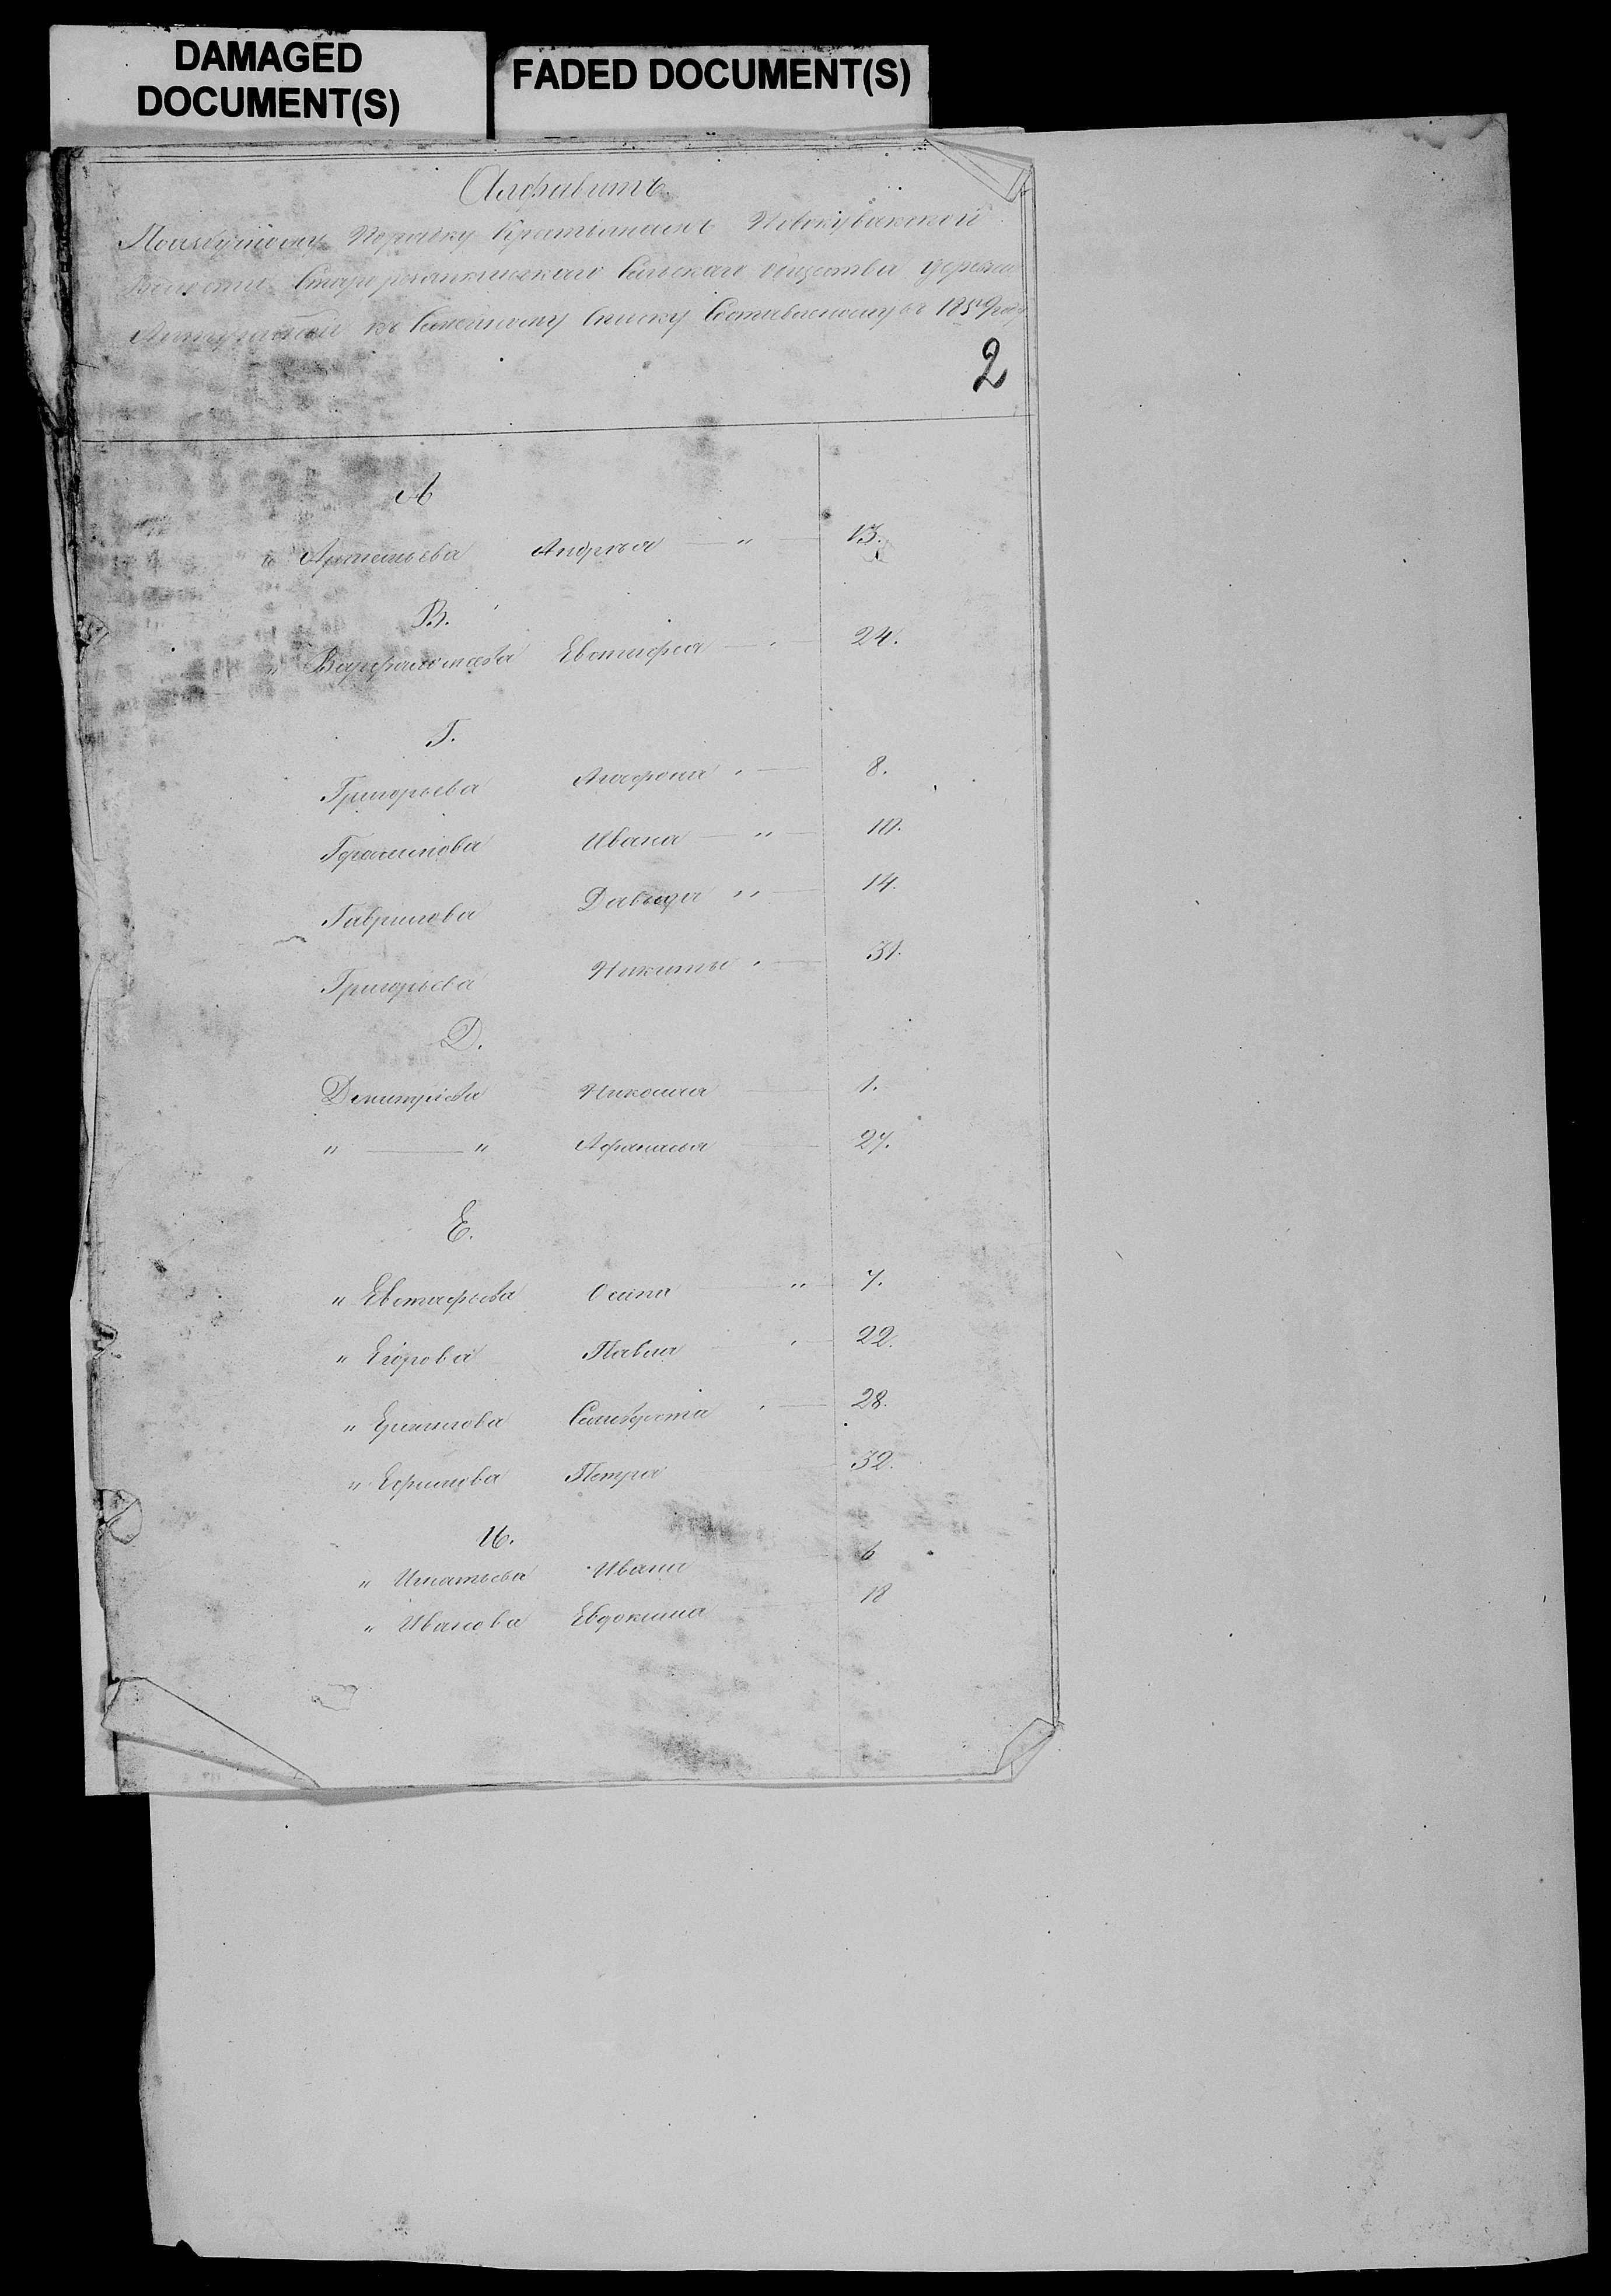 DAMAGED
DOCUMENT(S)
FADED DOCUMENT(S)
Алфавитъ.
Порядку Крестьянамъ Новокувакской
Волости сельскаго общества деревни
къ Семейному Списку Составленному въ 1859 году
2
А
Артемьева Андрея — " 13.
В.
" Варфаломеева Евстифея — " 24.
Г.
Григорьева Агафона " — 8.
Герасимова Ивана — " 10.
Гаврилова Давыда " — 14.
Григорьева Никиты " — 31.
Д.
Дмитріева Николая 1.
" — " Афанасья 27.
Е.
" Евстафьева Осипа " 7.
" Егорова Павла " 22.
" Ермилова " — 28.
" Ефимова Петра 32.
И.
" Игнатьева Ивана 6
" Иванова Евдокима 18